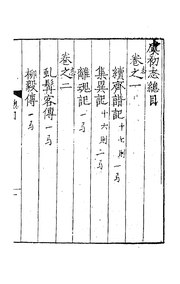 虞初志總目
卷之一
續齊諧記 十七則 一
集異記 十六則 二
離魂記 一
卷之二
虬髯客傳 一
柳毅傳 一